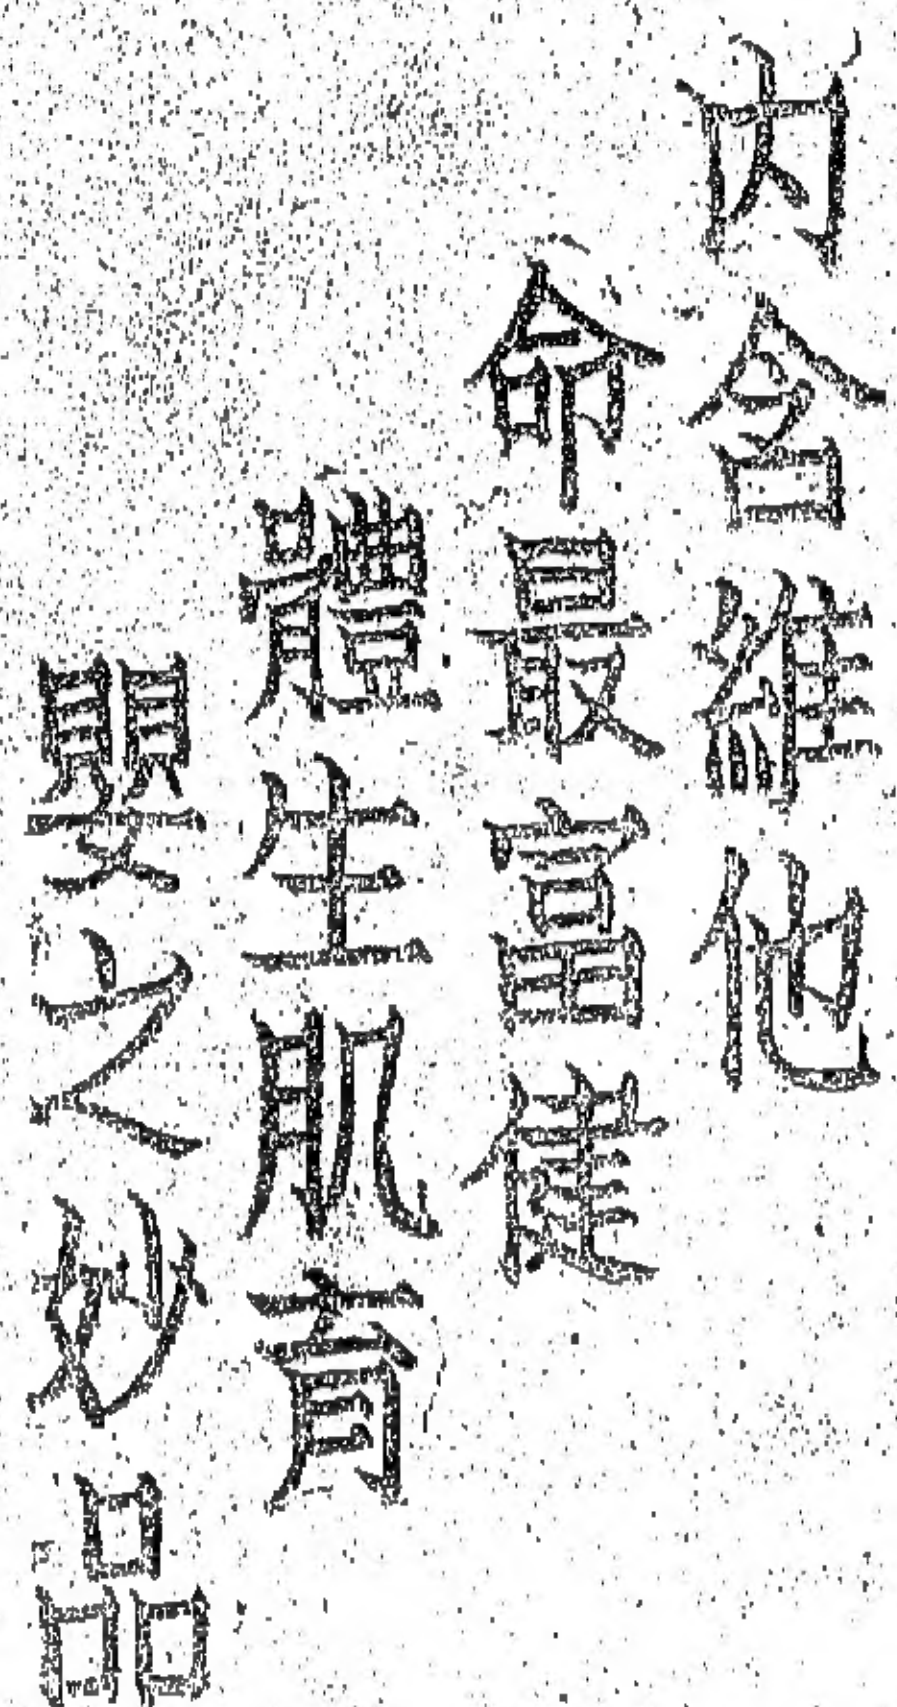 內含維他
命最富健
體生肌育
嬰之妙品